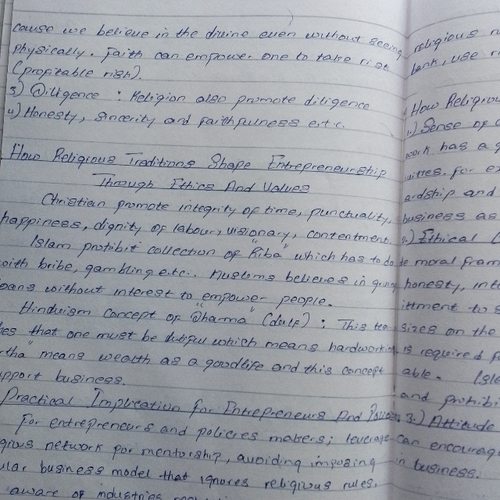 cause we believe in the divine even without seeing
physically. Faith can empower one to take risk
(profitable risk).
3) Diligence : Religion also promote diligence
4) Honesty, sincerity and faithfulness e.t.c.
How Religious Traditions Shape Entrepreneurship
Through Ethics And Values
Christian promote integrity of time, punctuality,
happiness, dignity of labour, visionary, contentment
Islam prohibit collection of "Riba" which has to do
with bribe, gambling etc. Muslims believes in giving
oans without interest to empower people.
Hinduism concept of "Dharma" (duty) : This tea
hes that one must be dutiful which means hardworking
rtha" means wealth as a goodlife and this concept
pport business.
Practical Implication for Entrepreneurs And
For entrepreneurs and policies matters; leverage
gious network for mentorship, avoiding imposing
ular business model that ignores religious rules,
aware of industries
religious
bank, use
How Religious
1) Sense of
work has a
mitres, for
ardship and
business as
2) Ethical
te moral fram
honesty, int
ittment to s
sizes on the
is required f
able. Isl
and prohibi
3) Attitude
can encourag
in business.